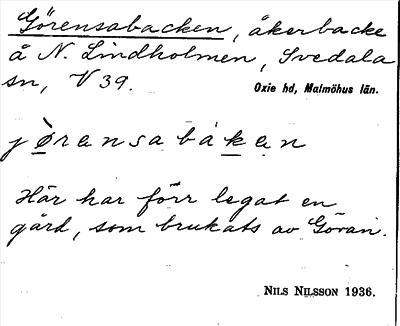 Görensabacken, åkerbacke
å N. Lindholmen, Svedala
sn, V 39.
Oxie hd, Malmöhus län.
jø̀rensabákan
Här har förr legat en
gård, som brukats av Göran.
NILS NILSSON 1936.